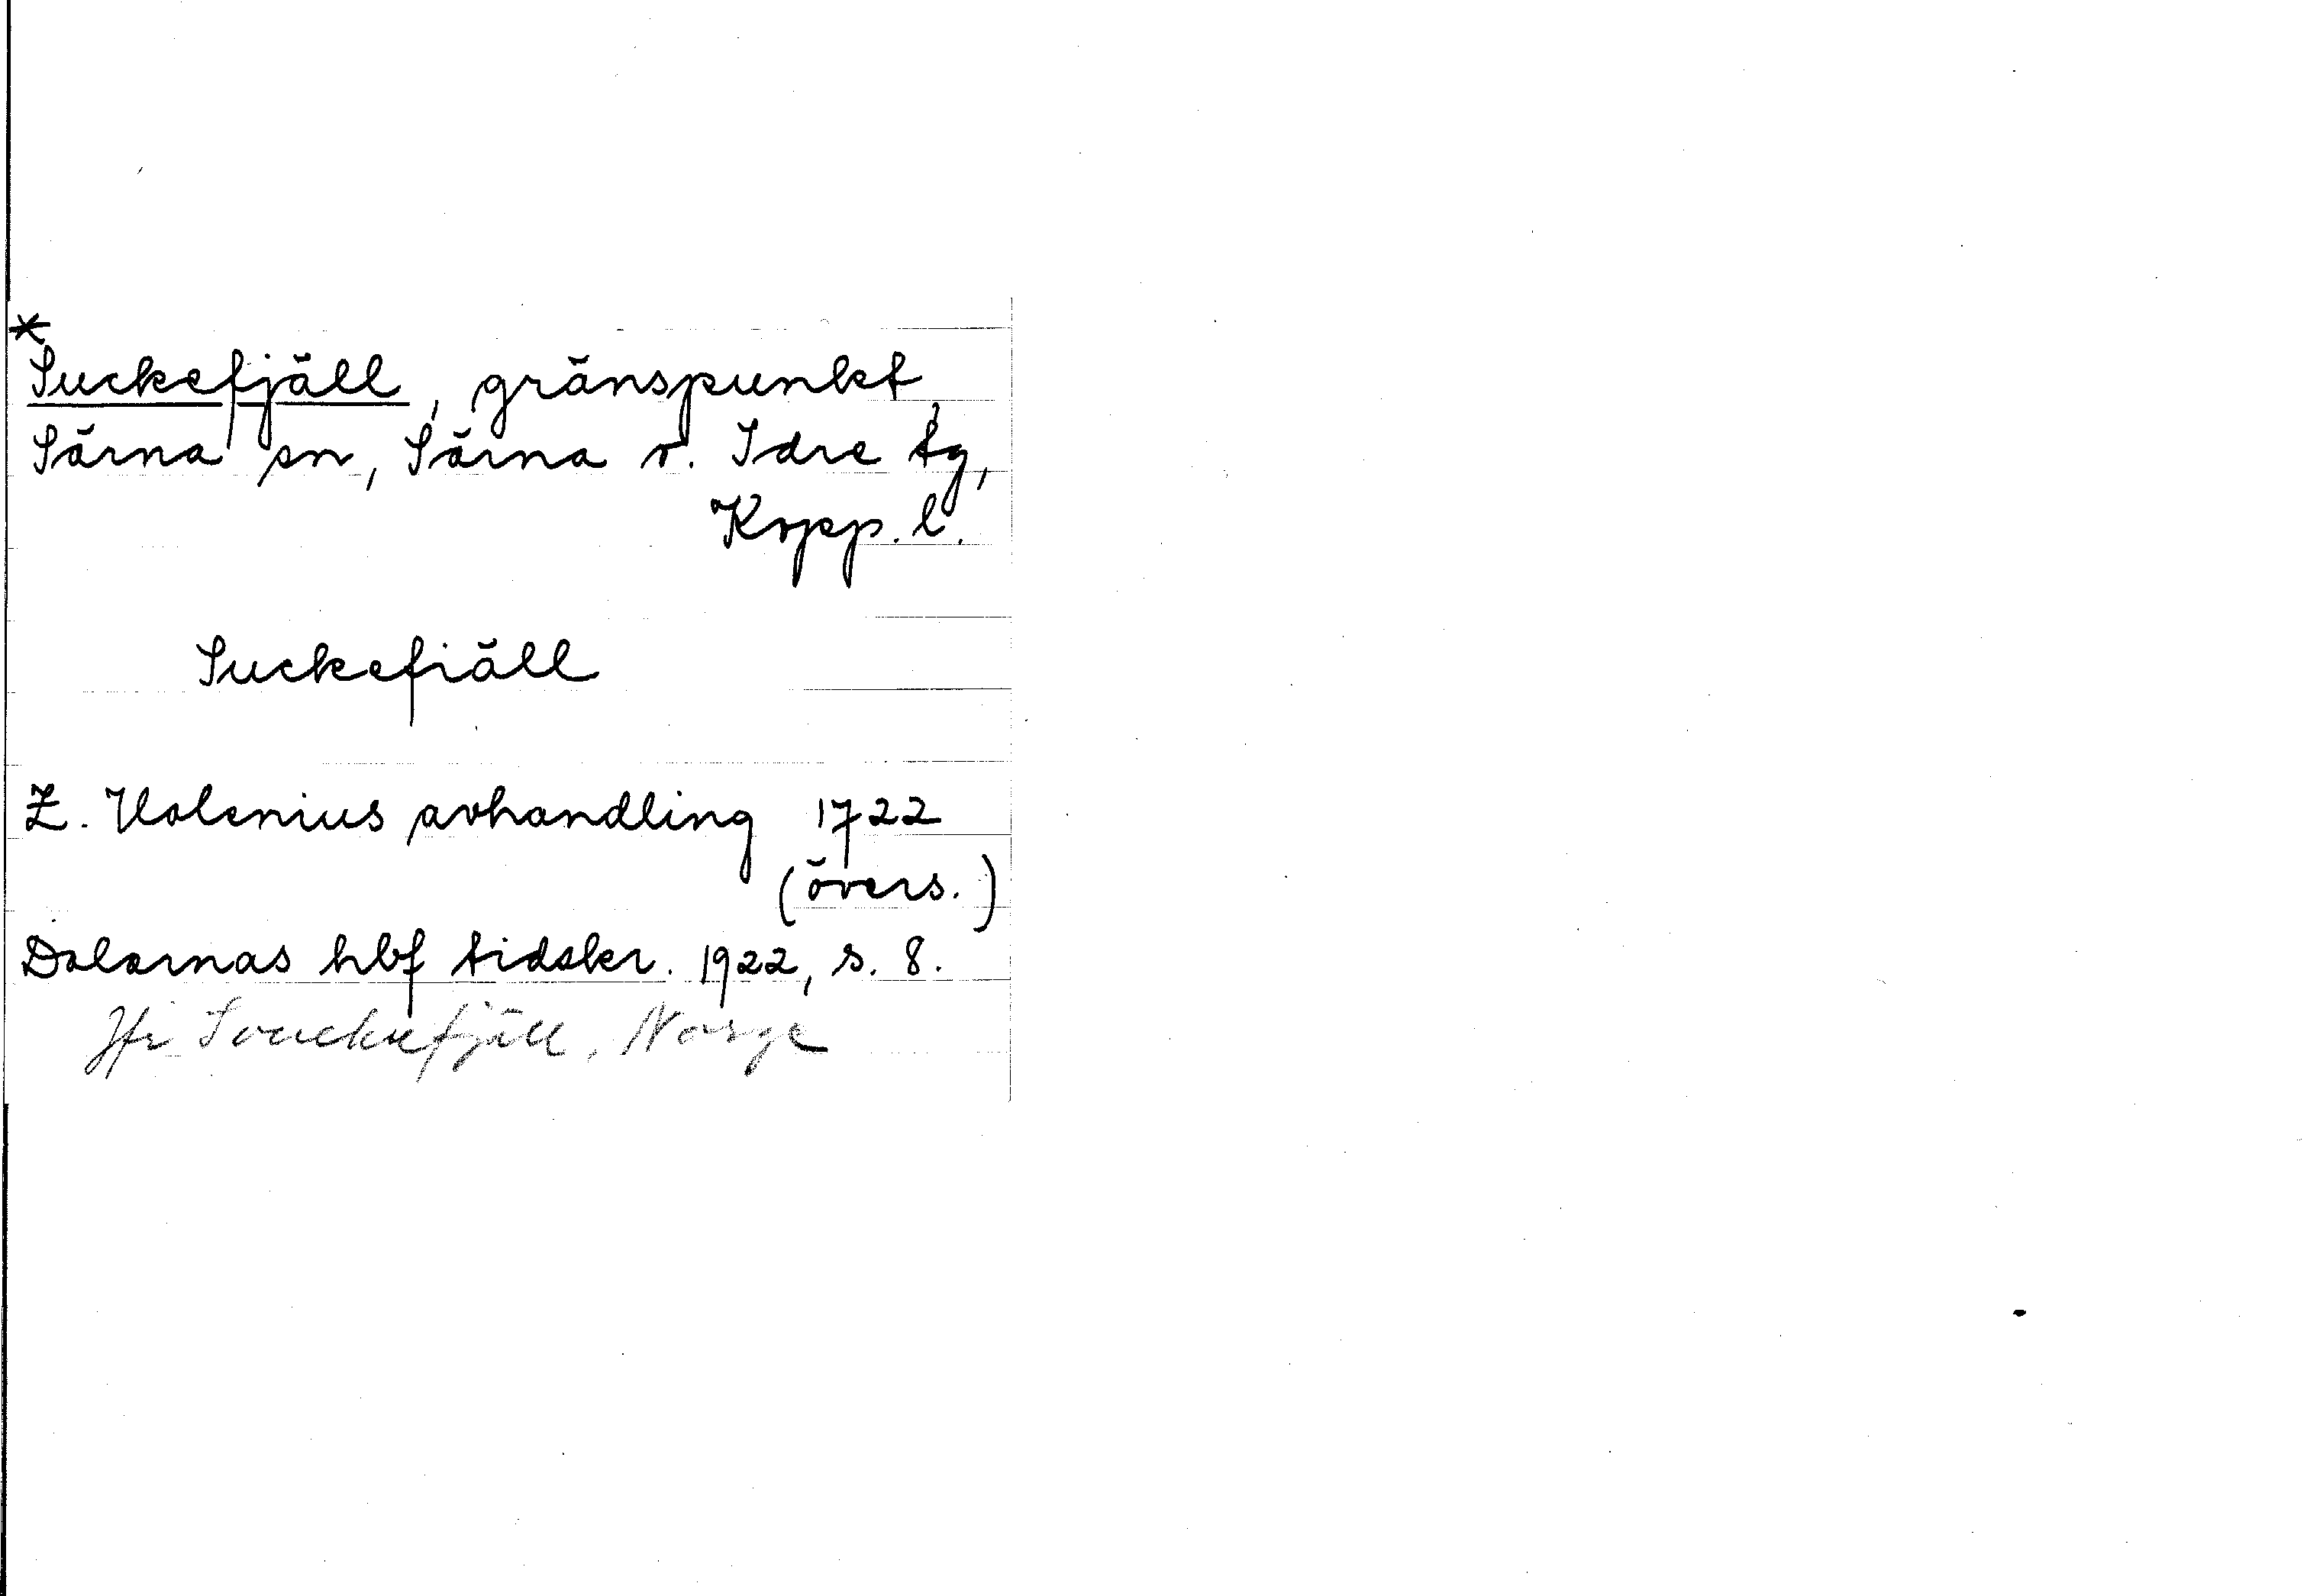 *
Suckefjäll, gränspunkt,
Särna sn, Särna o. Idre tg,
Kopp. l.
Suckefiäll
Z. Holenius avhandling 1722
(övers.)
Dalarnas hbf tidskr. 1922, s. 8.
Jfr Svuckufjäll, Norge